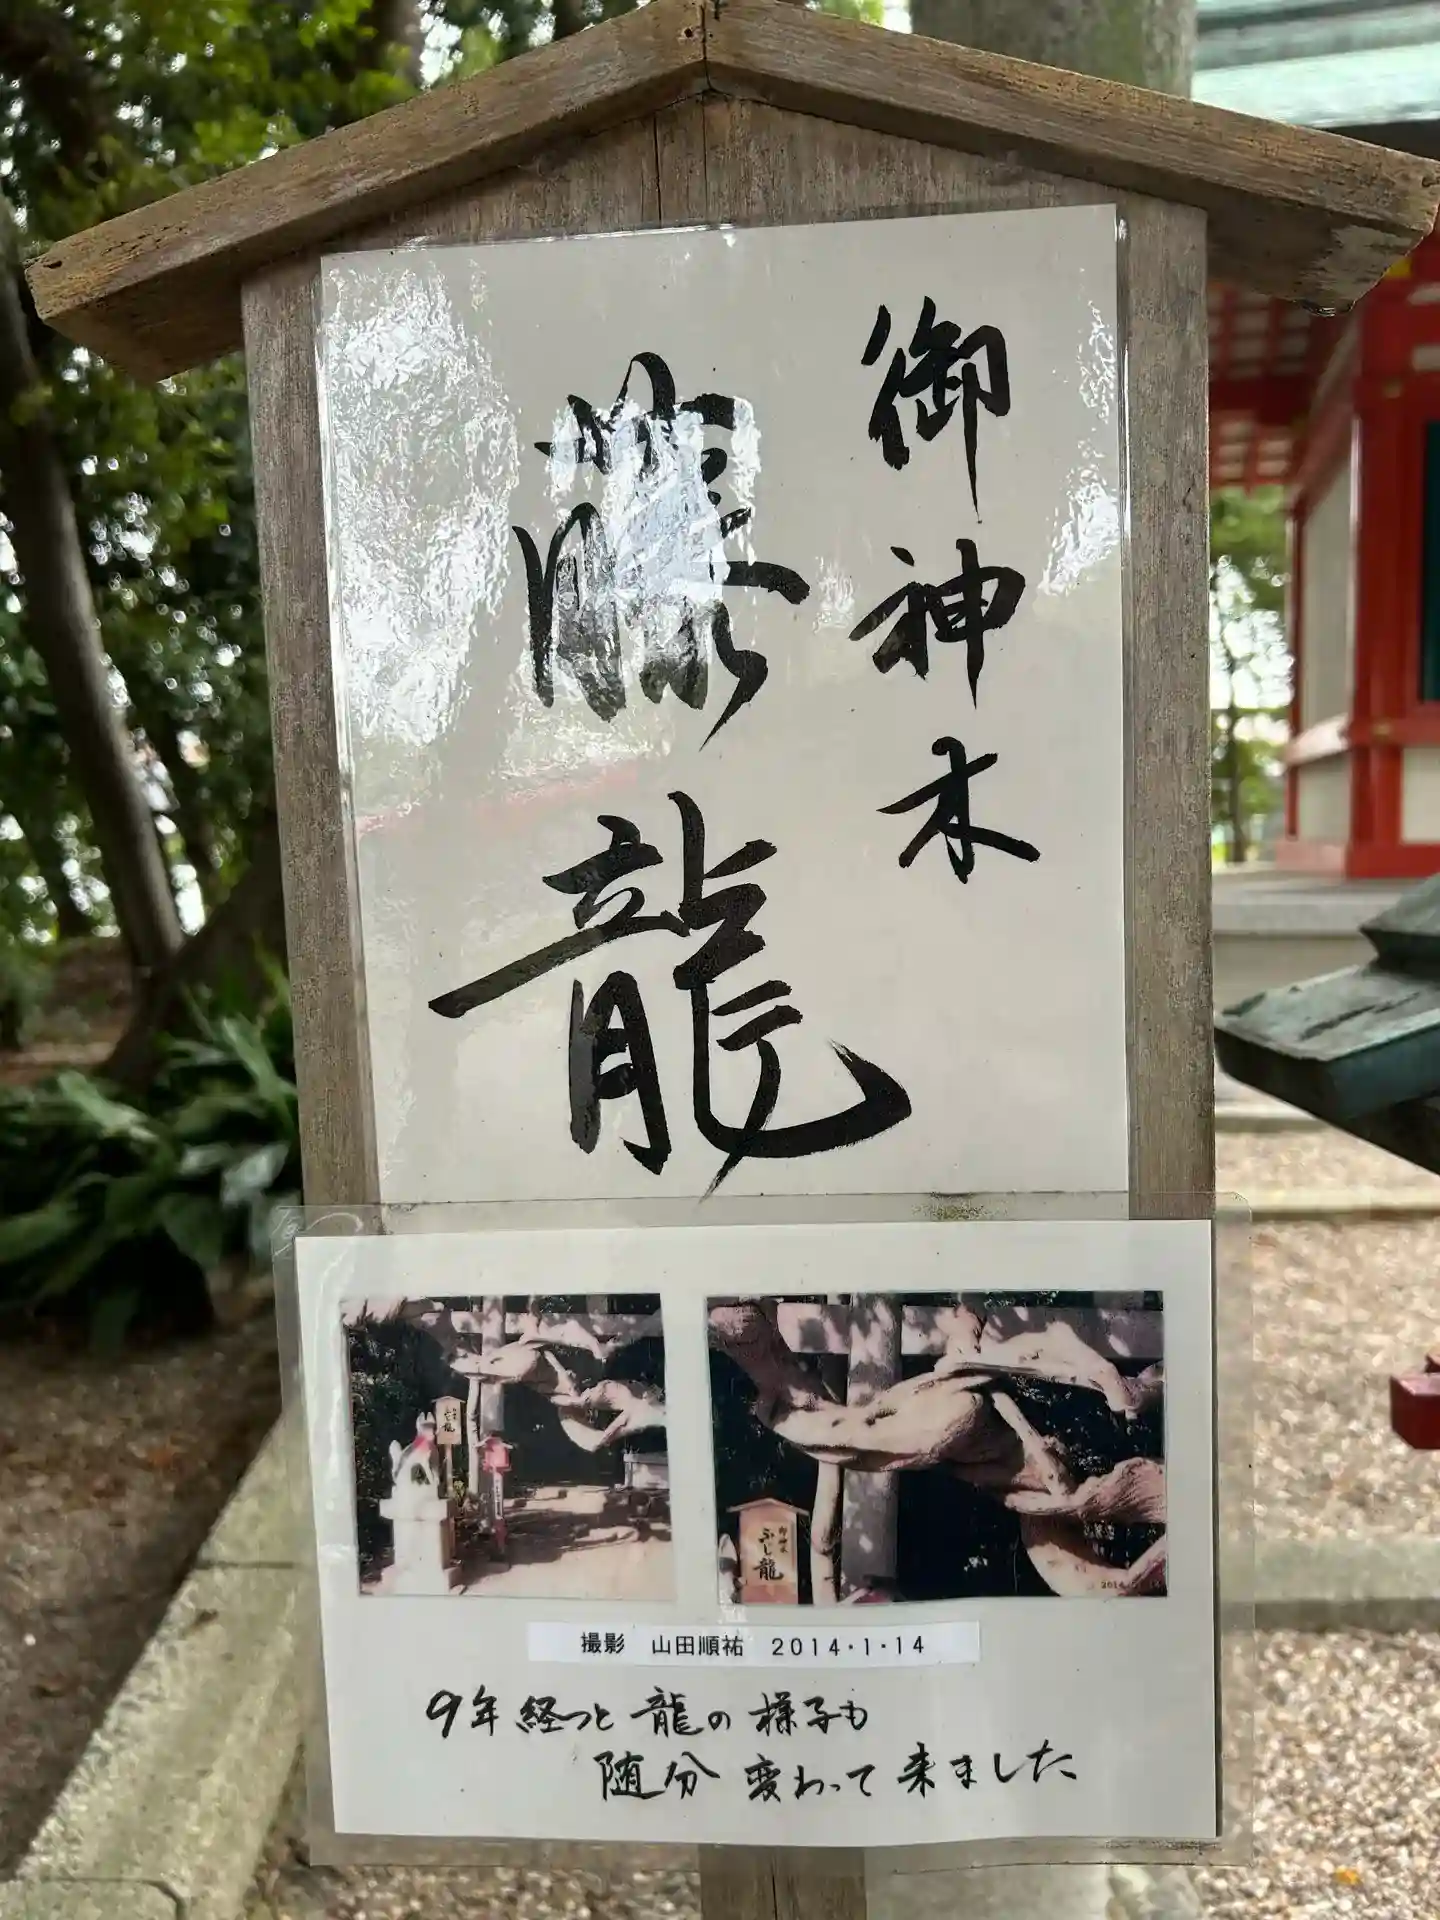 御神木
藤龍
御神木
ふじ龍
撮影 山田順祐 2014・1・14
9年経つと龍の様子も
随分変わって来ました